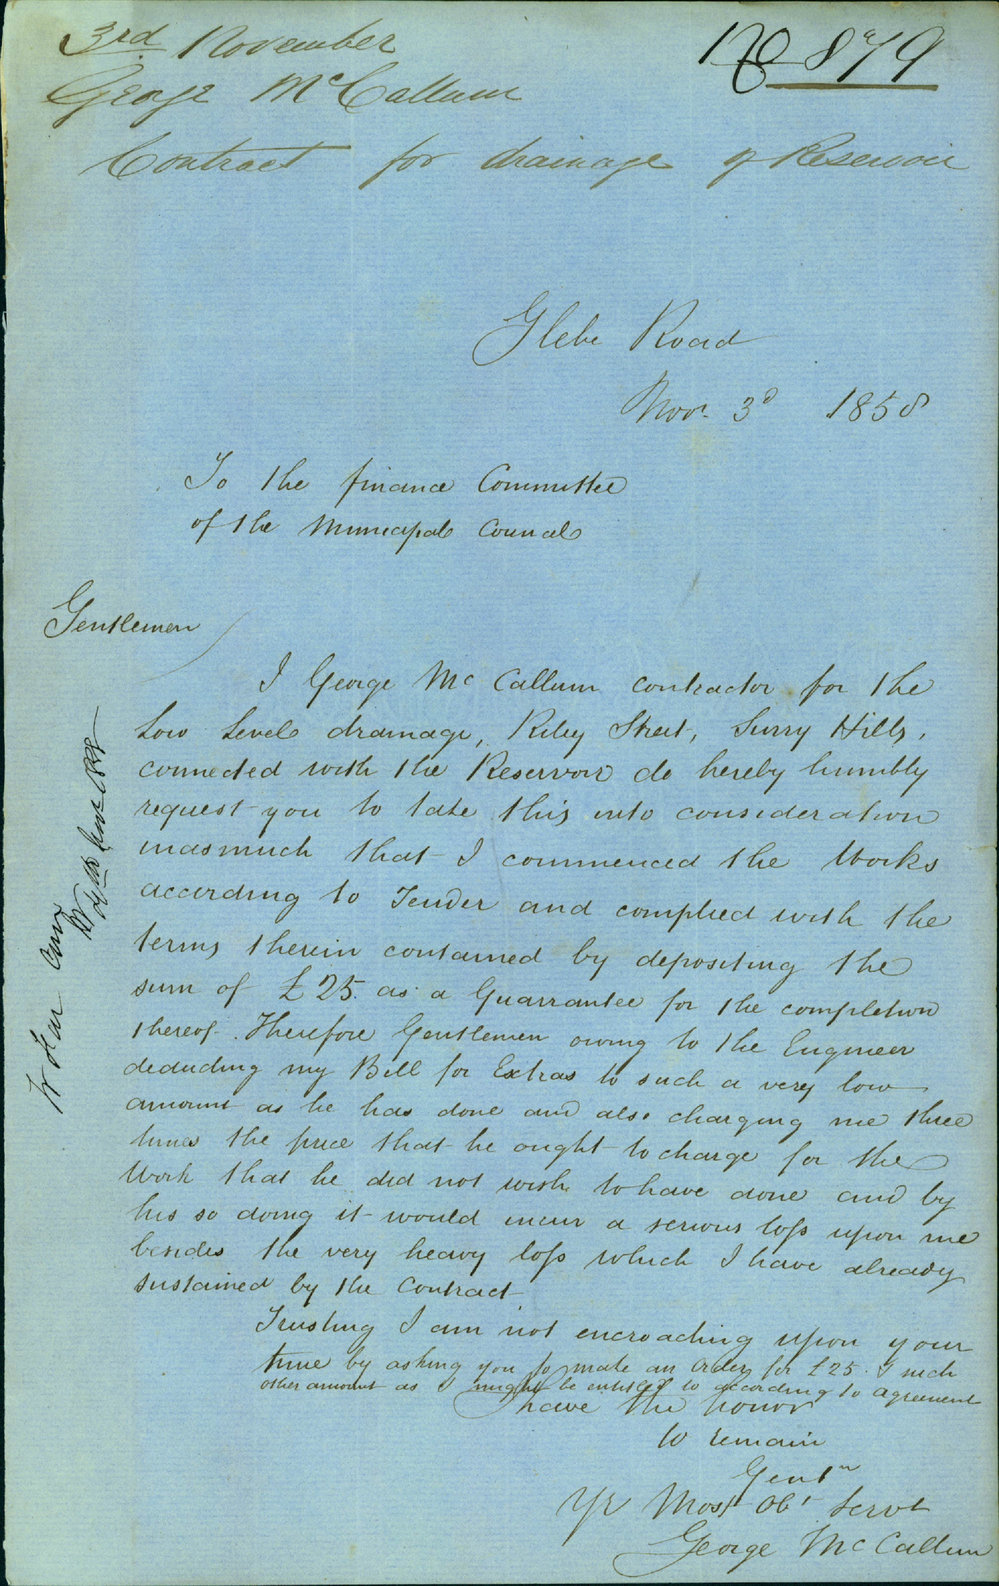 3rd November
No 879
George McCallum
Contract for drainage of Reservoir
Glebe Road
Novr. 3d 1858
To the finance Committee
of the Municipal Council
Gentlemen
I George Mc Callum contractor for the
Low Level drainage, Riley Street, Surry Hills,
connected with the Reservoir do hereby humbly
request you to take this into consideration
inasmuch that I commenced the Works
according to Tender and complied with the
terms therein contained by depositing the
sum of £25. as a Guarrantee for the completion
thereof. Therefore Gentlemen owing to the Engineer
deducting my Bill for Extras to such a very low
amount as he has done and also charging me three
times the price that he ought to charge for the
Work that he did not wish to have done and by
his so doing it would incur a serious loss upon me
besides the very heavy loss which I have already
sustained by the Contract
Trusting I am not encroaching upon your
time by asking you to make an order for £25. & such
other amount as I might be entitled to according to agreement
I have the honor
to remain
Gentn
Yr Most Obt Servt
George Mc Callum